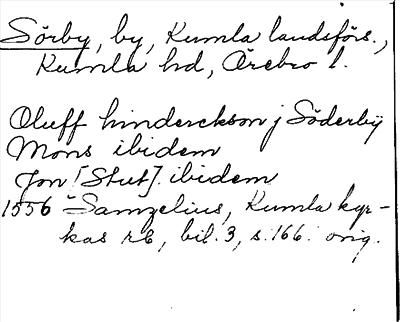 Sörby, by, Kumla landsförs.,
Kumla hd, Örebro l.
Oluff hinderckson j Söderbÿ
Mons ibidem
Jon [Stut]. ibidem
1556 Samzelius, Kumla kyr-
kas rb, bil. 3, s. 166. orig.